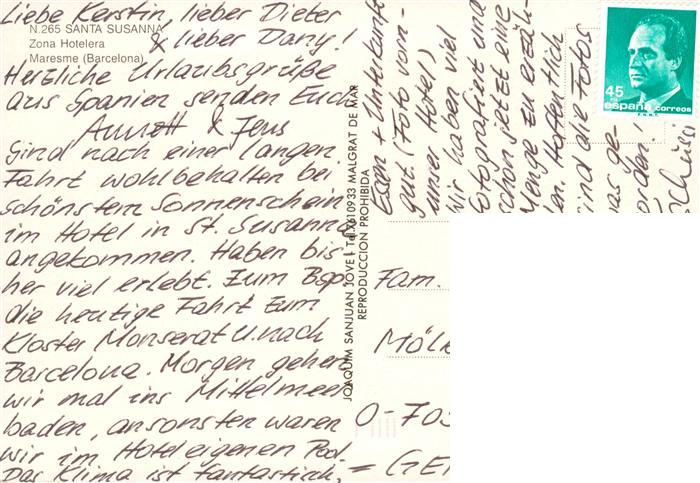 N.265 SANTA SUSANNA
Zona Hotelera
Maresme (Barcelona)
Liebe Kerstin, lieber Dieter
& lieber Dany!
Herzliche Urlaubsgrüße
aus Spanien senden Euch
Annett & Jens
Sind nach einer langen
Fahrt wohlbehalten bei
schönstem Sonnenschein
im Hotel in St. Susanna
angekommen. Haben bis
her viel erlebt. Zum Bsp.
die heutige Fahrt zum
Kloster Monserat u. nach
Barcelona. Morgen gehen
wir mal ins Mittelmeer
baden, ansonsten waren
wir im Hoteleigenen Pool.
Das Klima ist fantastisch,
Essen + Unterkunft
gut (Foto vom
unser Hotel)
Wir haben viel
fotografiert und
schon jetzt eine
Menge zu erzäh-
len. Hoffentlich
sind die Fotos
was ge-
worden!
Tschüssi
JOAQUIM SANJUAN JOVE - Tel. 7610933 MALGRAT DE MAR
REPRODUCCION PROHIBIDA
45
españa correos
F.N.M.T.
Fam.
Möl
O-705
= GE